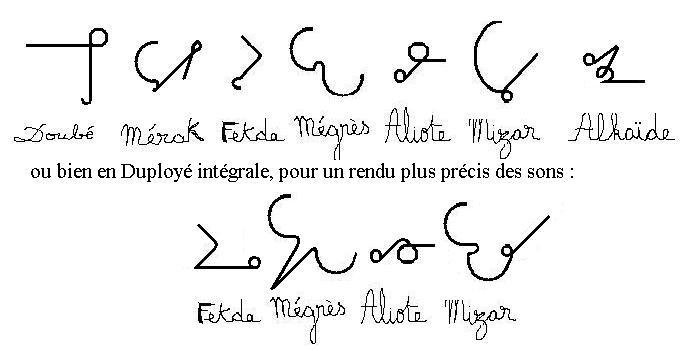 Doubé Mérak Fekda Mégrès Aliote Mizar Alkaïde
ou bien en Duployé intégrale, pour un rendu plus précis des sons :
Fekda Mégrès Aliote Mizar